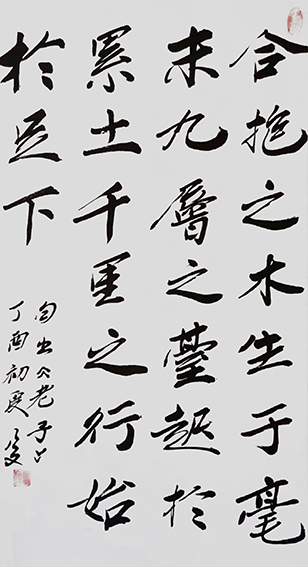 合抱之木生于毫
末九層之臺起於
累土千里之行始
於足下
句出《老子》
丁酉初夏